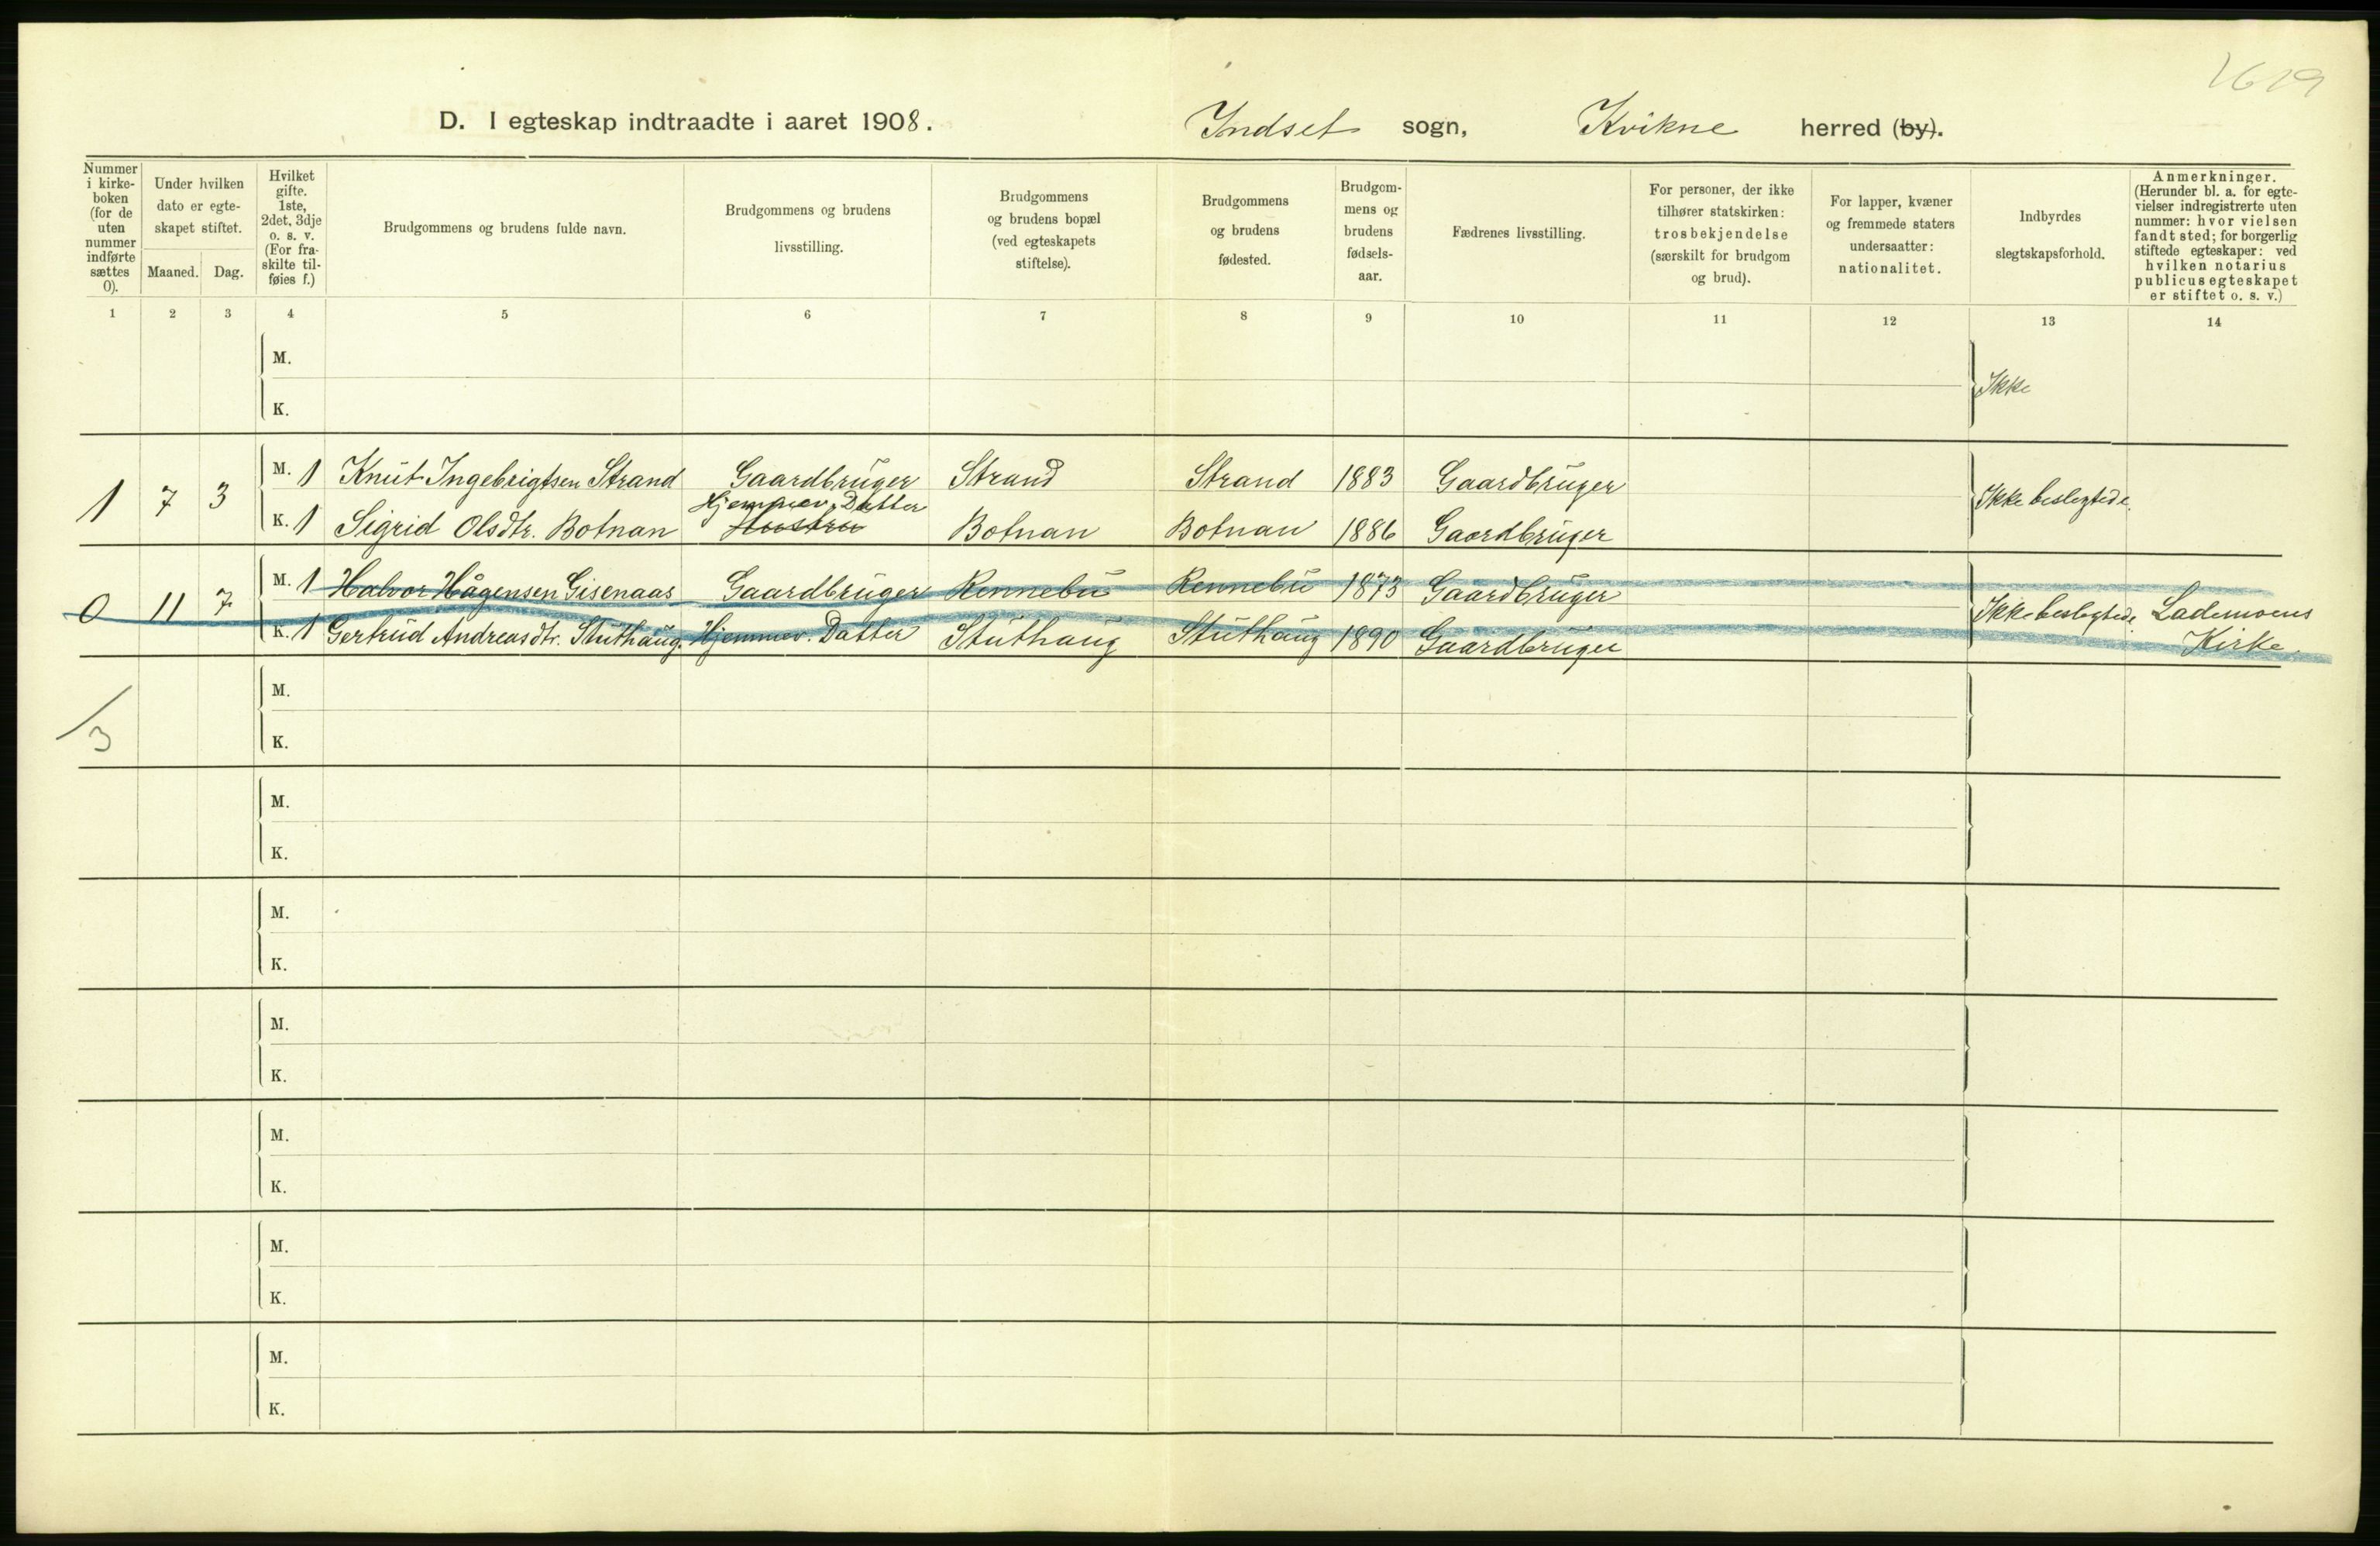 1619
D. I egteskap indtraadte i aaret 1908.
Indset sogn, Kvikne herred (by).
Nummer i kirke-boken (for de uten nummer indførte sættes 0).
Under hvilken dato er egte-skapet stiftet.
Maaned. Dag.
Hvilket gifte. 1ste, 2det, 3dje o. s. v. (For fra-skilte til-føies f.)
Brudgommens og brudens fulde navn.
Brudgommens og brudens livsstilling.
Brudgommens og brudens bopæl (ved egteskapets stiftelse).
Brudgommens og brudens fødested.
Brudgom-mens og brudens fødsels-aar.
Fædrenes livsstilling.
For personer, der ikke tilhører statskirken: trosbekjendelse (særskilt for brudgom og brud).
For lapper, kvæner og fremmede staters undersaatter: nationalitet.
Indbyrdes slegtskapsforhold.
Anmerkninger. (Herunder bl. a. for egte-vielser indregistrerte uten nummer: hvor vielsen fandt sted; for borgerlig stiftede egteskaper: ved hvilken notarius publicus egteskapet er stiftet o. s. v.)
1 2 3 4 5 6 7 8 9 10 11 12 13 14
M.
Ikke
K.
1 7 3
M. 1 Knut Ingebrigtsen Strand Gaardbruger Strand Strand 1883 Gaardbruger
Ikke beslegtede.
Hjemmev. Datter
K. 1 Sigrid Olsdtr. Botnan Hustru Botnan Botnan 1886 Gaardbruger
0 11 7
M. 1 Halvor Hågensen Gisenaas Gaardbruger Rennebu Rennebu 1873 Gaardbruger
Ikke beslegtede. Lademoens Kirke.
K. 1 Gertrud Andreasdtr. Stuthaug. Hjemmev. Datter Stuthaug Stuthaug 1890 Gaardbruger
M.
3
K.
M.
K.
M.
K.
M.
K.
M.
K.
M.
K.
M.
K.